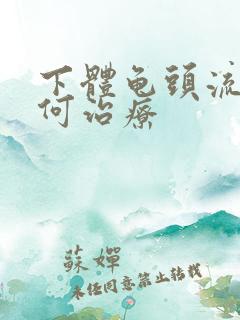 下體龟頭流
何治療
蘇嬋
未经同意禁止转载